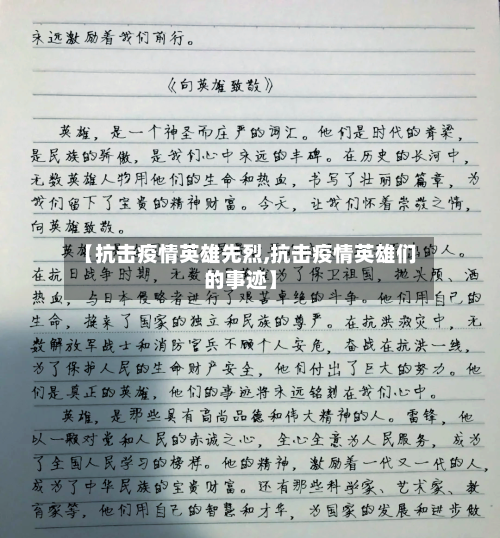 永远激励着我们前行。
《向英雄致敬》
英雄，是一个神圣而庄严的词汇。他们是时代的脊梁，
是民族的骄傲，是我们心中永远的丰碑。在历史的长河中，
无数英雄人物用他们的生命和热血，书写了壮丽的篇章，为
我们留下了宝贵的精神财富。今天，让我们怀着崇敬之情，
向英雄致敬。
英雄，
的人。
【抗击疫情英雄先烈,抗击疫情英雄们
的事迹】
在抗日战争时期，无数 为了保卫祖国，抛头颅、洒
热血，与日本侵略者进行了艰苦卓绝的斗争。他们用自己的
生命，换来了国家的独立和民族的尊严。在抗洪救灾中，无
数解放军战士和消防官兵不顾个人安危，奋战在抗洪一线，
为了保护人民的生命财产安全，他们付出了巨大的努力。他
们是真正的英雄，他们的事迹将永远铭刻在我们心中。
英雄，是那些具有高尚品德和伟大精神的人。雷锋，他
以一颗对党和人民的赤诚之心，全心全意为人民服务，成为
了全国人民学习的榜样。他的精神，激励着一代又一代的人，
成为了中华民族的宝贵财富。还有那些科学家、艺术家、教
育家等，他们用自己的智慧和才华，为国家的发展和进步做